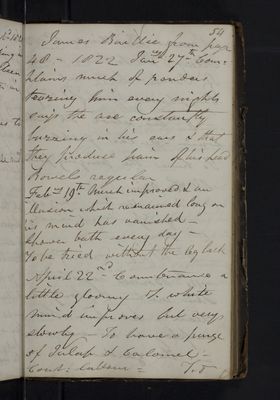 54
James Baillie from page
48 - 1822 Jany 27th Com:
plains much of
teazing him every night
says the are constantly
buzzing in his ears & that
they produce pain of his head
bowels regular
Feby 19th Much improved & an
illusion which remained long on
his mind has vanished -
Shower bath every day -
To be tried without the leg lock
April 22nd Countenance a
little gloomy T. white
mind improves but very
slowly - To have a purge
of Jalap & Calomel -
Cont: labour =